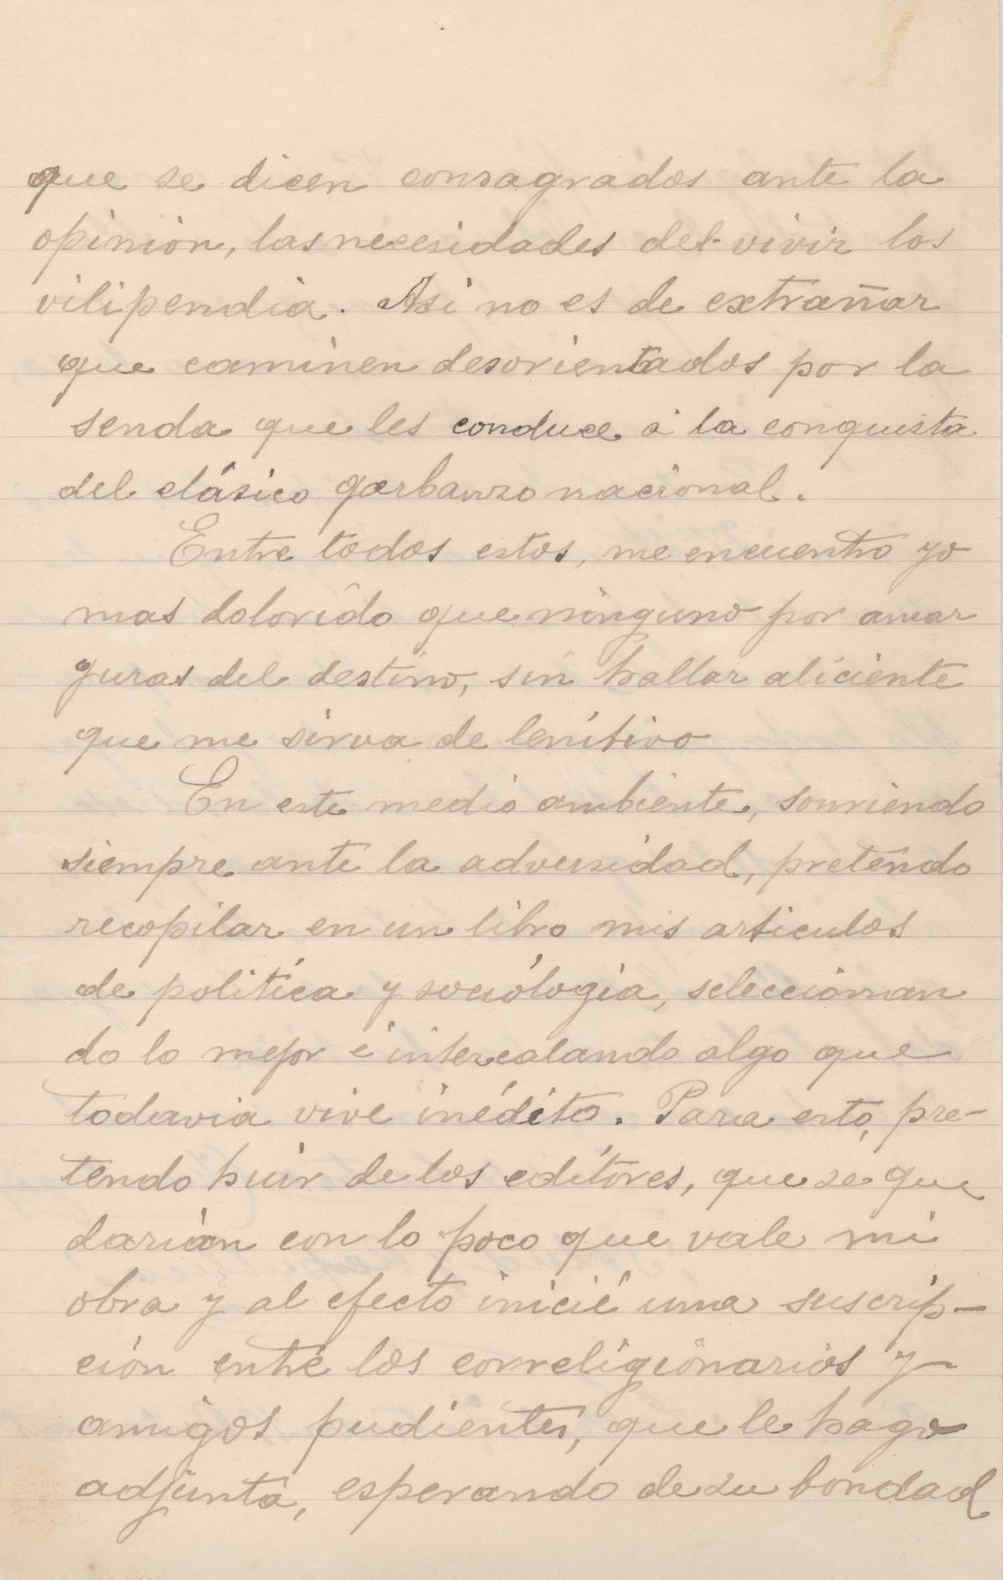 que se dicen consagrados ante la
opinión, las necesidades del vivir los
vilipendia. Asi no es de extrañar
que caminen desorientados por la
senda que les conduce á la conquista
del clásico garbanzo nacional.
Entre todos estos, me encuentro yo
mas dolorido que ninguno por amar
guras del destino, sin hallar aliciente
que me sirva de lenitivo
En este medio ambiente, sonriendo
siempre ante la adversidad, pretendo
recopilar en un libro mis articulos
de política y sociólogia, seleccionan
do lo mejor é intercalando algo que
todavia vive inédito. Para esto, pre-
tendo huir de los editores, que se que
darian con lo poco que vale mi
obra y al efecto inicié una suscrip-
ción entre los correligionarios y
amigos pudientes, que le hago
adjunta, esperando de su bondad